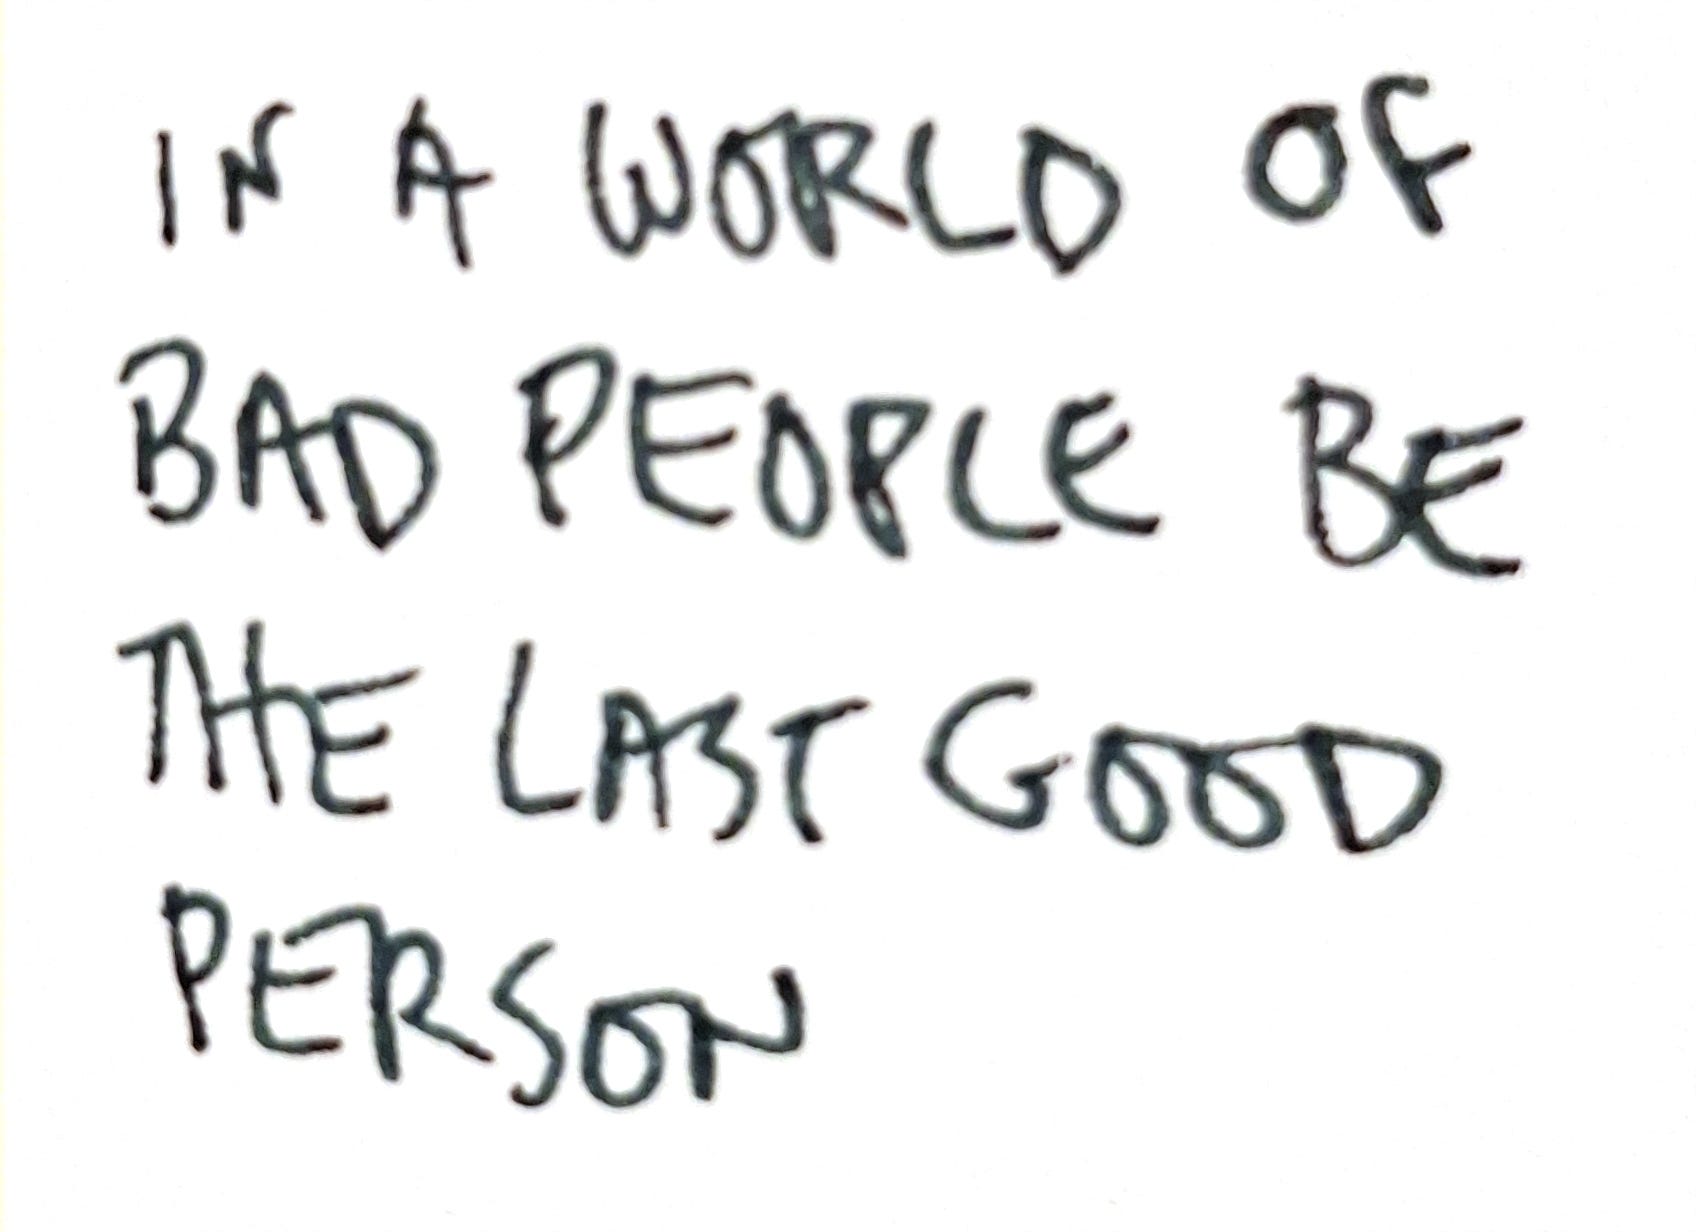 IN A WORLD OF
BAD PEOPLE BE
THE LAST GOOD
PERSON